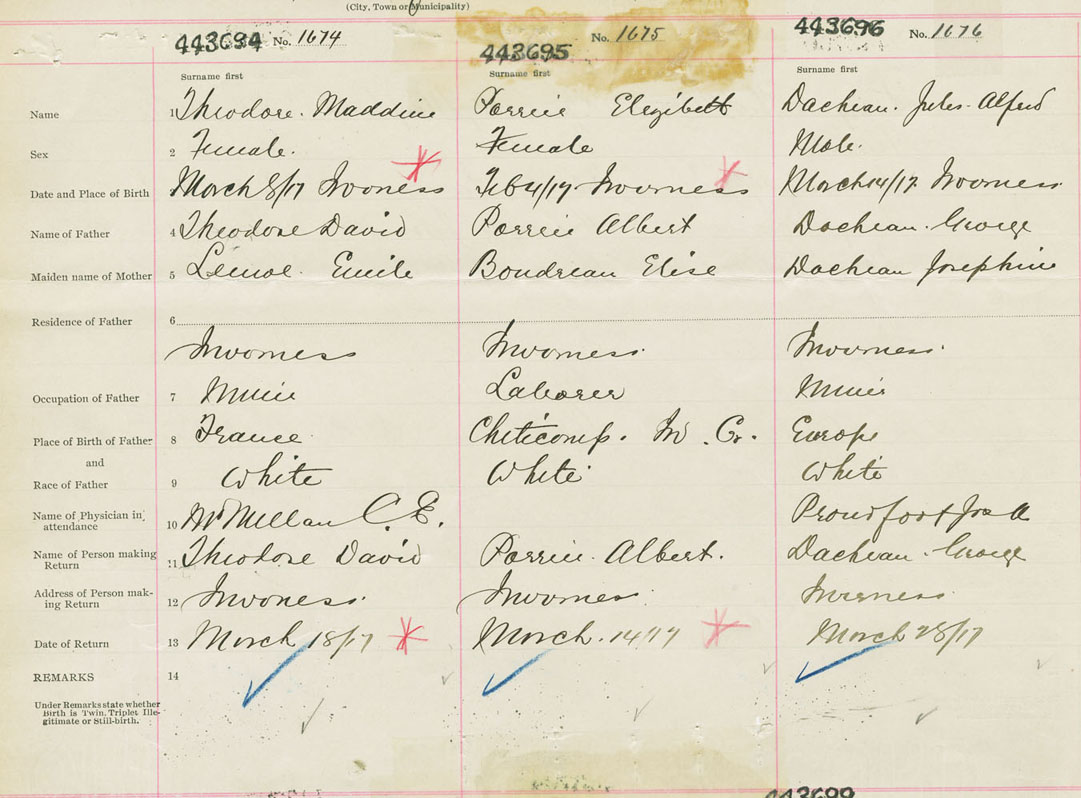 (City, Town or Municipality)
443694 No. 1674 443695 No. 1675 443696 No. 1676
Surname first Surname first Surname first
Name 1 Theodore. Maddine Perrie Elezibett Dacheau. Jules Alfred
Sex 2 Female. Female Male.
Date and Place of Birth March 8/17 Inverness Feb 4/17 Inverness March 14/17. Inverness
Name of Father 4 Theodore David Perrie Albert Dacheau. George
Maiden name of Mother 5 Lemoe. Emile Boudreau Elise Dacheau Josephine
Residence of Father 6
Inverness Inverness. Inverness.
Occupation of Father 7 Miner Laborer Miner
Place of Birth of Father 8 France. Cheticamp. Europe
and
Race of Father 9 White White White
Name of Physician in attendance 10 McMillan C. E. Proudfoot Jas A
Name of Person making Return 11 Theodore David Perrie. Albert. Dacheau. George
Address of Person making Return 12 Inverness. Inverness. Inverness.
Date of Return 13 March 18/17 March. 14/17 March 28/17
REMARKS 14
Under Remarks state whether
Birth is Twin, Triplet Ille-
gitimate or Still-birth.
443699